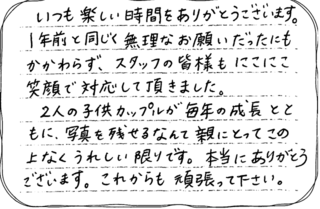 いつも楽しい時間をありがとうございます。
1年前と同じく無理なお願いだったにも
かかわらず、スタッフの皆様もにこにこ
笑顔で対応して頂きました。
2人の子供カップルが毎年の成長とと
もに、写真を残せるなんて親にとってこの
上なくうれしい限りです。本当にありがとう
ございます。これからも頑張って下さい。